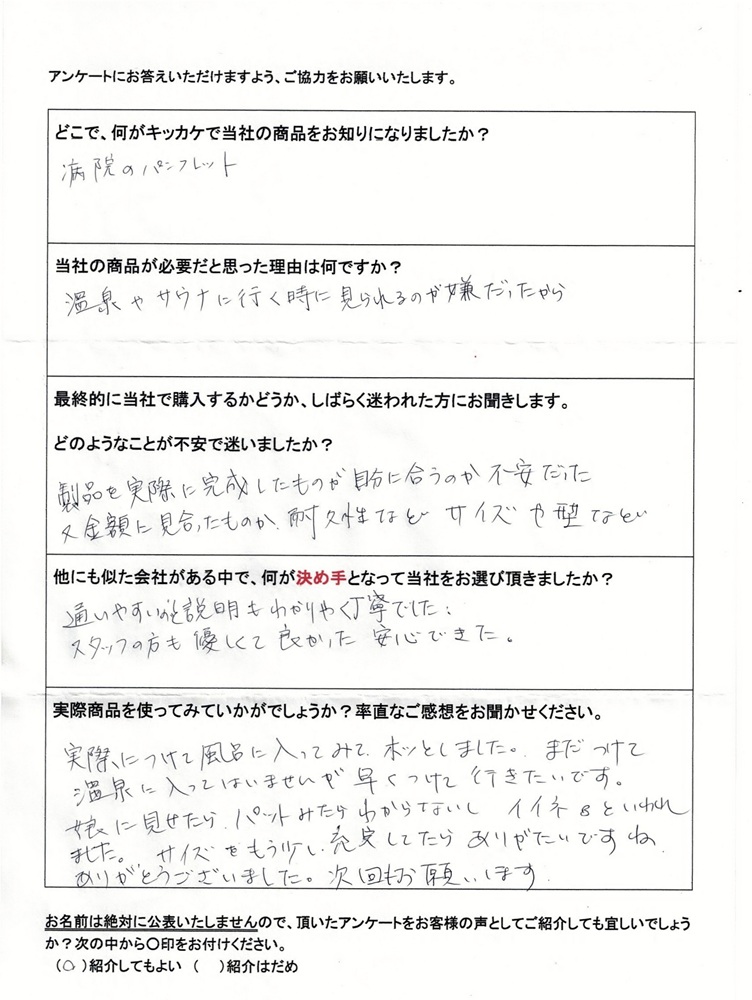 アンケートにお答えいただけますよう、ご協力をお願いいたします。
どこで、何がキッカケで当社の商品をお知りになりましたか？
病院のパンフレット
当社の商品が必要だと思った理由は何ですか？
温泉やサウナに行く時に見られるのが嫌だったから
最終的に当社で購入するかどうか、しばらく迷われた方にお聞きします。
どのようなことが不安で迷いましたか？
製品を実際に完成したものが自分に合うのか不安だった
又金額に見合ったものか、耐久性など サイズや型など
他にも似た会社がある中で、何が決め手となって当社をお選び頂きましたか？
通いやすい 説明もわかりやく丁寧でした
スタッフの方も優しくて良かった 安心できた。
実際商品を使ってみていかがでしょうか？率直なご感想をお聞かせください。
実際につけて風呂に入ってみて、ホッとしました。まだつけて
温泉に入ってはいませんが早くつけて行きたいです。
娘に見せたら、パットみたらわからないし イイネ といわれ
ました。サイズをもう少し充実してたらありがたいですね
ありがとうございました。次回もお願いします
お名前は絶対に公表いたしませんので、頂いたアンケートをお客様の声としてご紹介しても宜しいでしょう
か？次の中から〇印をお付けください。
（〇）紹介してもよい （ ）紹介はだめ